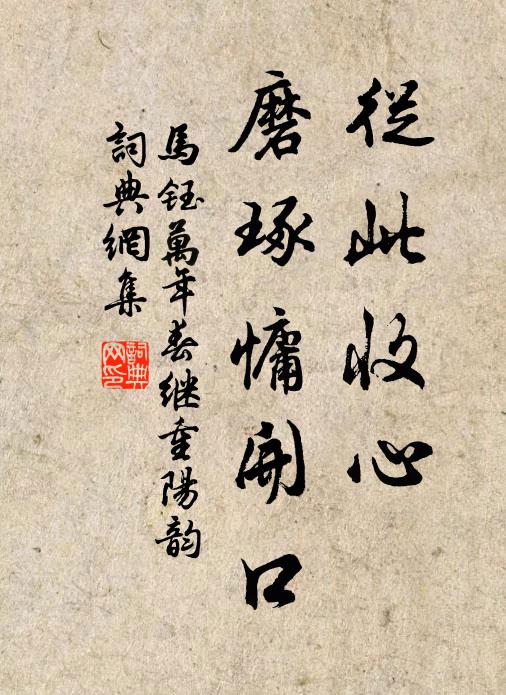 從此收心
磨琢慵開口
馬鈺萬年春继重陽韵
詞典網集
詞典
网印